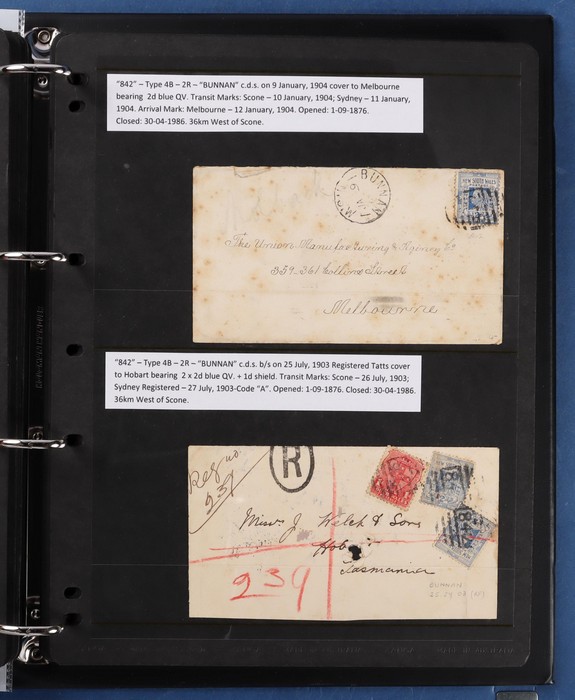 "842" – Type 4B – 2R – "BUNNAN" c.d.s. on 9 January, 1904 cover to Melbourne
bearing 2d blue QV. Transit Marks: Scone – 10 January, 1904; Sydney – 11 January,
1904. Arrival Mark: Melbourne – 12 January, 1904. Opened: 1-09-1876.
Closed: 30-04-1986. 36km West of Scone.
BUNNAN
N.S.W
9
JA
NEW SOUTH WALES
The Union Manufacturing & Agency Co
359-361 Collins Street
Melbourne
"842" – Type 4B – 2R – "BUNNAN" c.d.s. b/s on 25 July, 1903 Registered Tatts cover
to Hobart bearing 2 x 2d blue QV. + 1d shield. Transit Marks: Scone – 26 July, 1903;
Sydney Registered – 27 July, 1903-Code "A". Opened: 1-09-1876. Closed: 30-04-1986.
36km West of Scone.
R
Reg no.
239
Messrs J. Welch & Sons
Hobart
Tasmania
239
BUNNAN